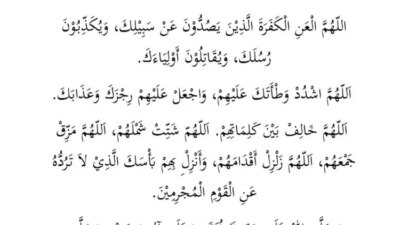 اللّٰهُمَّ الْعَنِ الْكَفَرَةَ الَّذِيْنَ يَصُدُّوْنَ عَنْ سَبِيْلِكَ، وَيُكَذِّبُوْنَ
رُسُلَكَ، وَيُقَاتِلُوْنَ أَوْلِيَاءَكَ.
اَللّٰهُمَّ اشْدُدْ وَطْأَتَكَ عَلَيْهِمْ، وَاجْعَلْ عَلَيْهِمْ رِجْزَكَ وَعَذَابَكَ.
اَللّٰهُمَّ خَالِفْ بَيْنَ كَلِمَاتِهِمْ. اَللّٰهُمَّ شَتِّتْ شَمْلَهُمْ، اَللّٰهُمَّ مَزِّقْ
جَمْعَهُمْ، اَللّٰهُمَّ زَلْزِلْ أَقْدَامَهُمْ، وَأَنْزِلْ بِهِمْ بَأْسَكَ الَّذِيْ لَا تَرُدُّهُ
عَنِ الْقَوْمِ الْمُجْرِمِيْنَ.